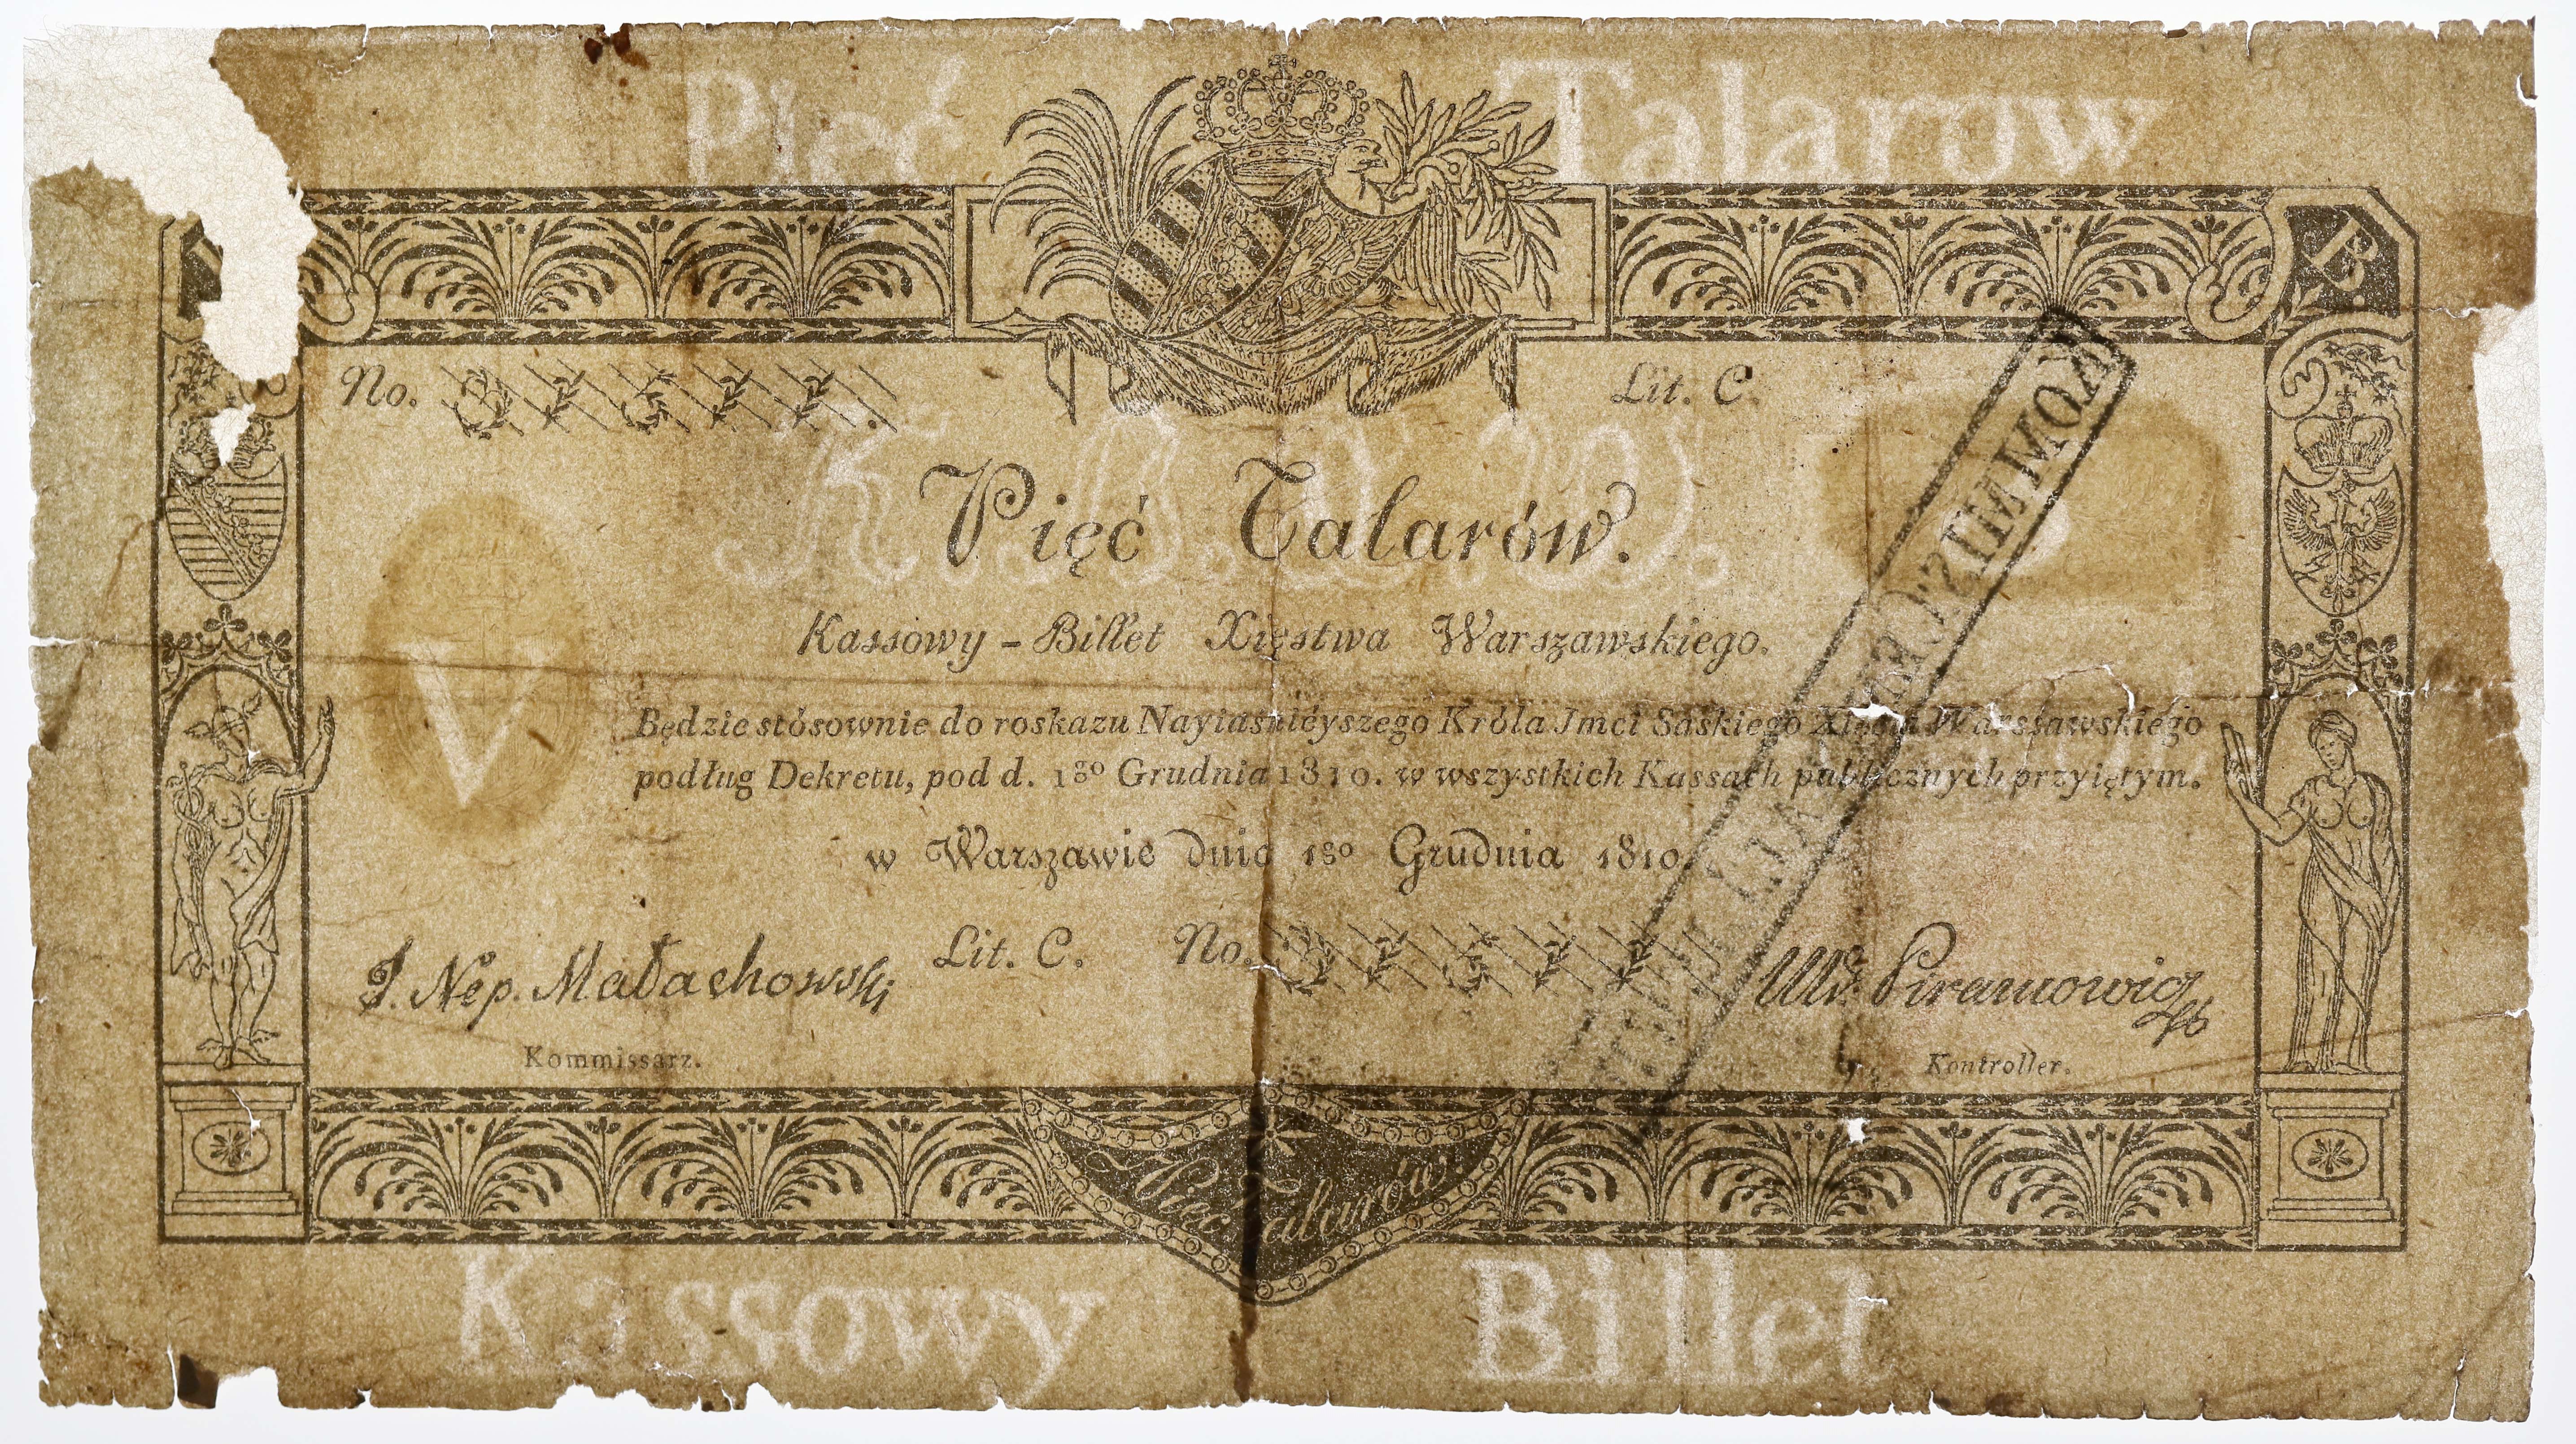 Pięć Talarow
B
No. 81611.
Lit. C.
K. B. W.
Pięć Talarów.
Kassowy - Billet Xięstwa Warszawskiego.
V
Będzie stósownie do roskazu Nayiaśnićyszego Króla Jmci Saskiego Xięcia Warszawskiego
podług Dekretu, pod d. 1go Grudnia 1810. w wszystkich Kassach publicznych przyiętym.
w Warszawie dnia 1go Grudnia 1810.
Lit. C. No.
J. Nep. Małachowski
Kommissarz.
Piramowicz
Kontroller.
Pięć Talarów
Kassowy Billet